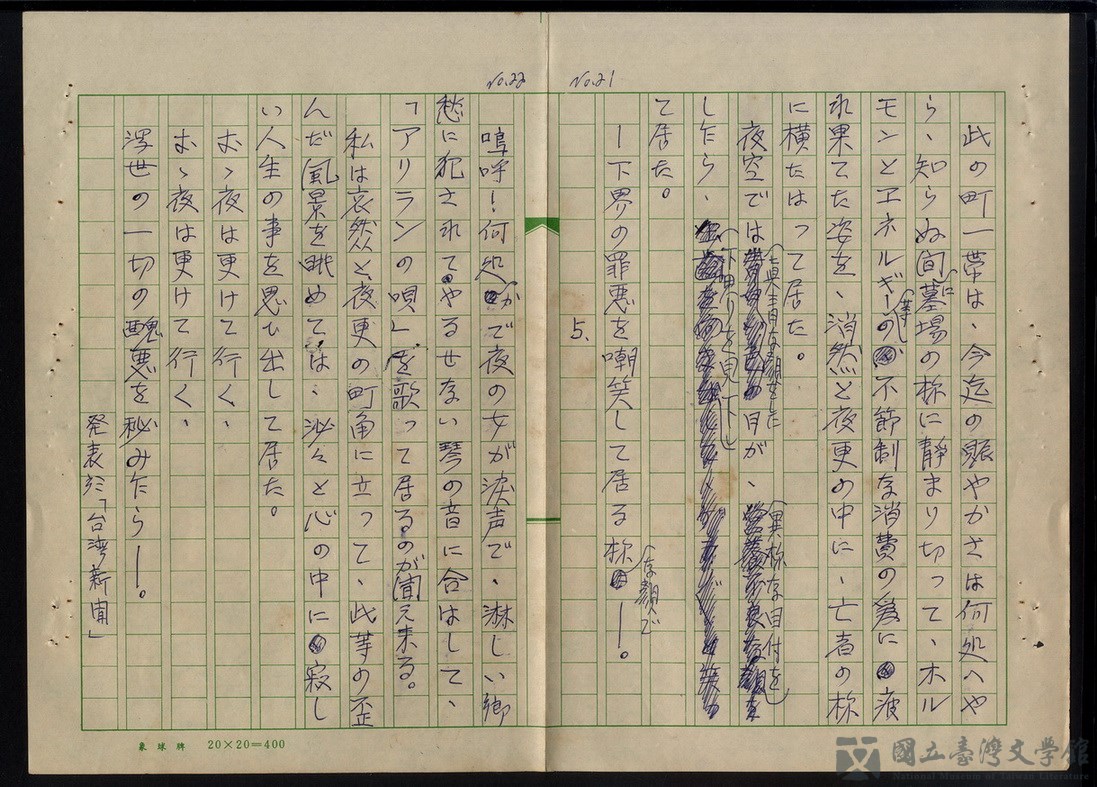 No.21
此の町一帯は、今迄の賑やかさは何処へや
ら、知らぬ間墓場の様に静まり切って、ホル
モンとエネルギー等の不節制な消費の為に疲
れ果てた姿を、消然と夜更の中に、亡者の様
に横たはって居た。
夜空では真青な顔をした月が、異様な目付を
し乍ら、下界を見下し
て居た。
ー下界の罪悪を嘲笑して居る様な顔でー。
5.
No.22
嗚呼！何処かで夜の女が涙声で、淋しい郷
愁に犯されてやるせない琴の音に合はして、
「アリランの唄」を歌って居るのが聞え来る。
私は哀然と夜更の町角に立って、此等の歪
んだ風景を眺めては、泌々と心の中に寂し
い人生の事を思ひ出して居た。
おゝ夜は更けて行く、
おゝ夜は更けて行く、
浮世の一切の醜悪を秘み乍らー。
発表於「台湾新聞」
象球牌 20×20=400
國立臺灣文學館
National Museum of Taiwan Literature